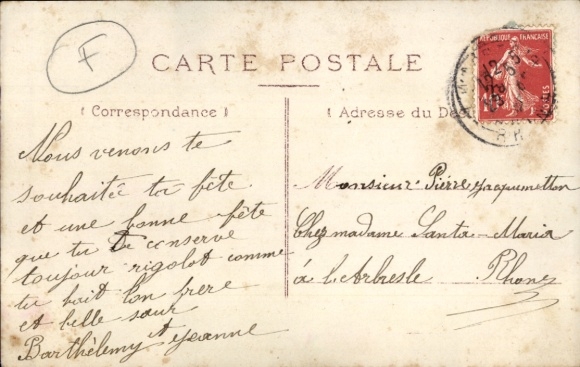 F
CARTE POSTALE
REPUBLIQUE FRANÇAISE
POSTES
( Correspondance )
( Adresse du Des
Nous venons te
souhaité ta fête
et une bonne fête
que tu te conserve
toujour rigolot comme
tu
ton frere
et belle sœur
Barthélemy et Jeanne
Monsieur Pierre Jacquemetton
Chez madame Santa-Maria
à L'Arbresle Rhone